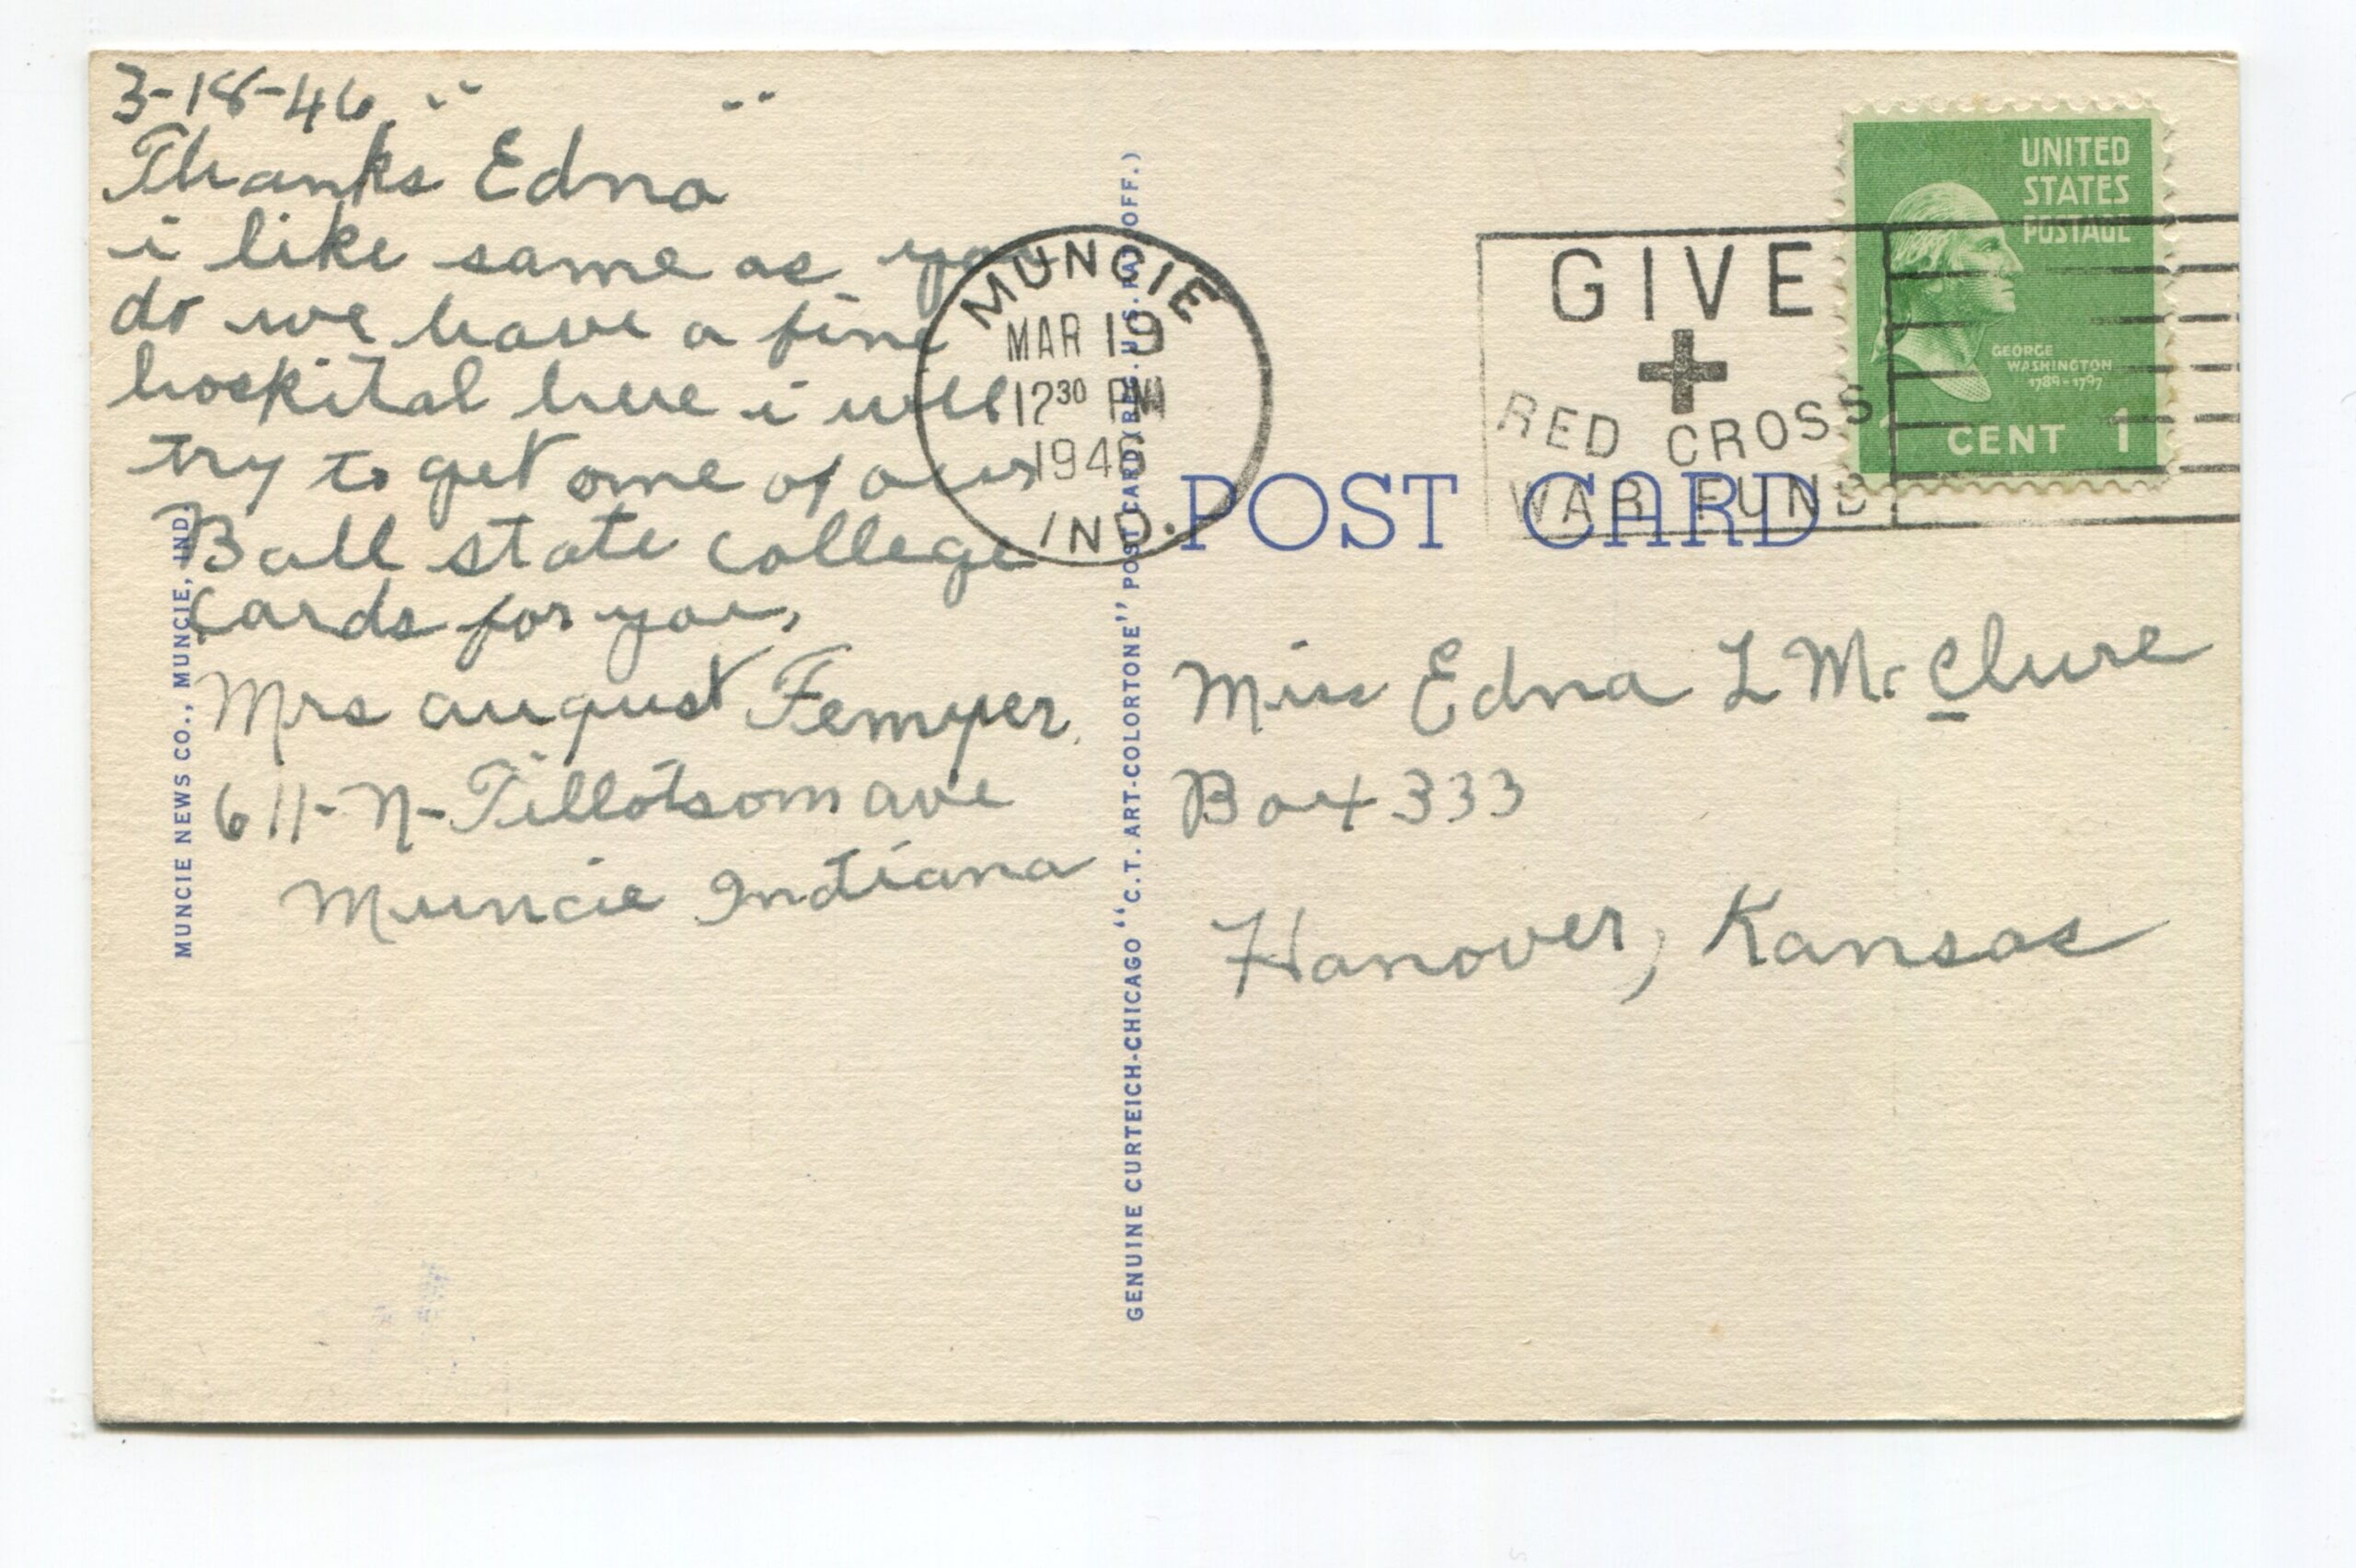 3-18-46
Thanks Edna
i like same as you
do we have a fine
hoskital here i will
try to get some of our
Ball state college
cards for you,
Mrs august Femyer.
611-N-Tillotsom ave
Muncie Indiana
MUNCIE NEWS CO., MUNCIE, IND.
GENUINE CURTEICH-CHICAGO "C.T. ART-COLORTONE" POST CARD (REG. U.S. PAT. OFF.)
MUNCIE
MAR 19
12 30 PM
1946
IND.
GIVE
RED CROSS
WAR FUND
UNITED
STATES
POSTAGE
GEORGE
WASHINGTON
1789-1797
1 CENT 1
POST CARD
Miss Edna L McClure
Box 333
Hanover, Kansas